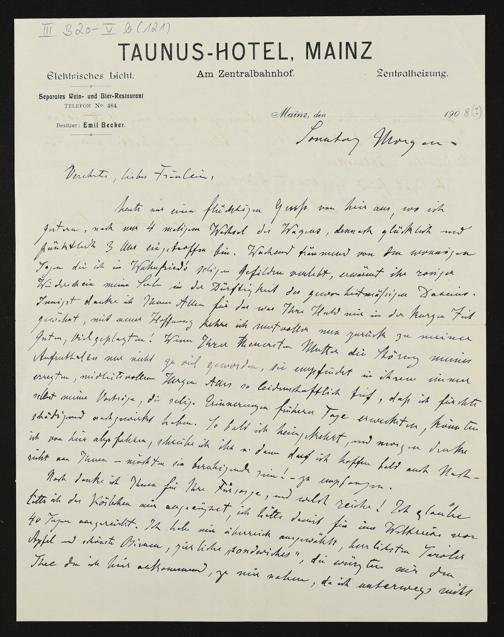 III B20-V b (121)
TAUNUS-HOTEL, MAINZ
Elektrisches Licht.
Am Zentralbahnhof.
Zentralheizung.
Separates Wein- und Bier-Restaurant
TELEFON No. 464.
Besitzer: Emil Becker.
Mainz, den 190 8(?)
Sonntag Morgen.
Verehrtes, liebes Fräulein,
heute nur einen flüchtigen Gruss von hier aus, wo ich
gestern, nach nur 4 maligem Wechsel des Wagens, dennoch glücklich und
pünktlich 3 Uhr eingetroffen bin. Während von den wonnigen
Tagen die ich in Wahnfried's seligen Gefilden verlebt, erwärmt ihr rosiger
Widerschein meine Seele in der Dürftigkeit des gewohnheitsmässigen Daseins.
Innigst danke ich Ihnen Allen für das was Ihre Huld mir in der kurzen Zeit
gewährt, mit neuer Hoffnung kehre ich mutvoller nun zurück zu meiner
Guten, Vielgeplagten! Wenn Ihrer theuersten Mutter die Störung meines
Aufenthaltes nur nicht zu viel geworden, sie empfindet in ihrem immer
erregten, mitleidsvollem Herzen Alles so leidenschaftlich tief, daß ich fürchte
selbst meine Vorträge, die selige Erinnerungen früherer Tage erweckten, könnten
schädigend nachgewirkt haben. So bald ich heimgekehrt, und morgen denke
ich von hier abzufahren, schreibe ich ihr u. dann darf ich hoffen bald auch Nach-
richt von Ihnen – möchten sie beruhigende sein! – zu empfangen.
Noch danke ich Ihnen für Ihre Fürsorge, und welch reiche! Ich glaube
hätte ich das Körbchen nur ich hätte damit für ins Walküre von
40 Tagen ausgereicht. Ich habe nur überreich ausgewählte, herrlichsten Tiroler
Äpfel und schönste Birnen, zierliche „sandwiches", die würzten mir den
Thee den ich hier ankommend, zu mir nahm, da ich unterwegs nichts